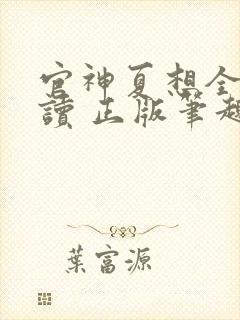 官神夏想全
讀 正版筆趣
葉富源